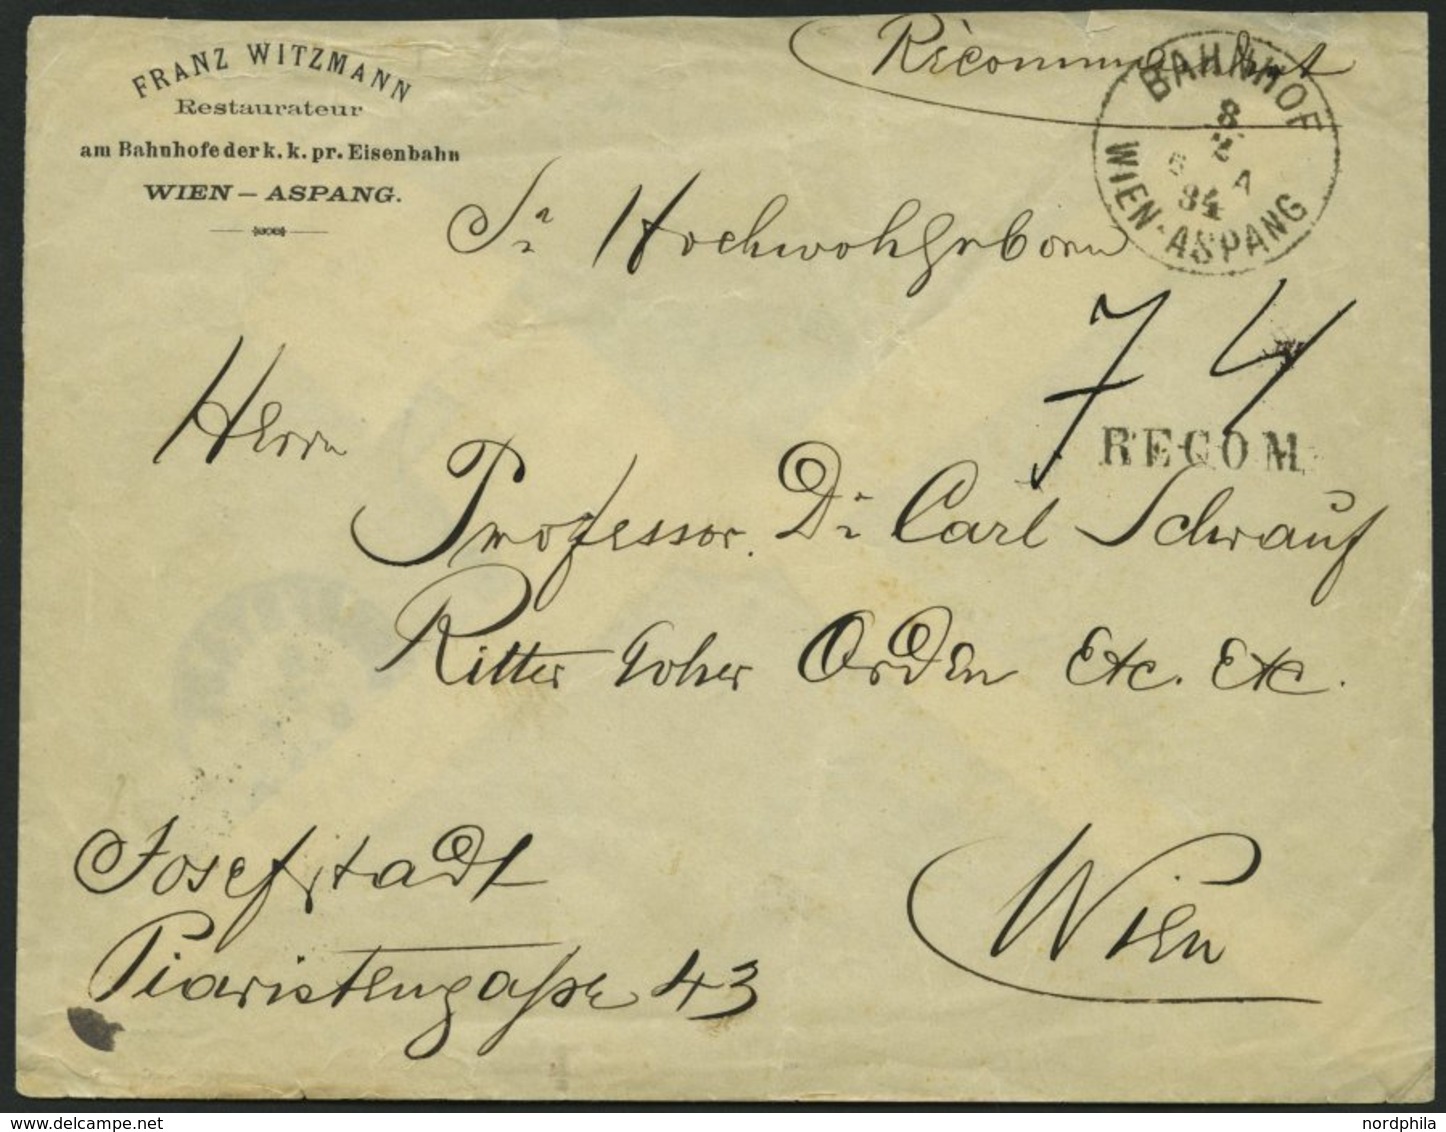 FRANZ WITZMANN
Restaurateur
am Bahnhofe der k. k. pr. Eisenbahn
WIEN – ASPANG.
Recommandirt
BAHNHOF
8
5
84
A
WIEN-ASPANG
Sr Hochwohlgeborn
74
RECOM
Herrn
Professor. Dr Carl Schrauf
Ritter hoher Orden Etc. Etc.
Josefstadt
Piaristengaße 43
Wien
nordphila